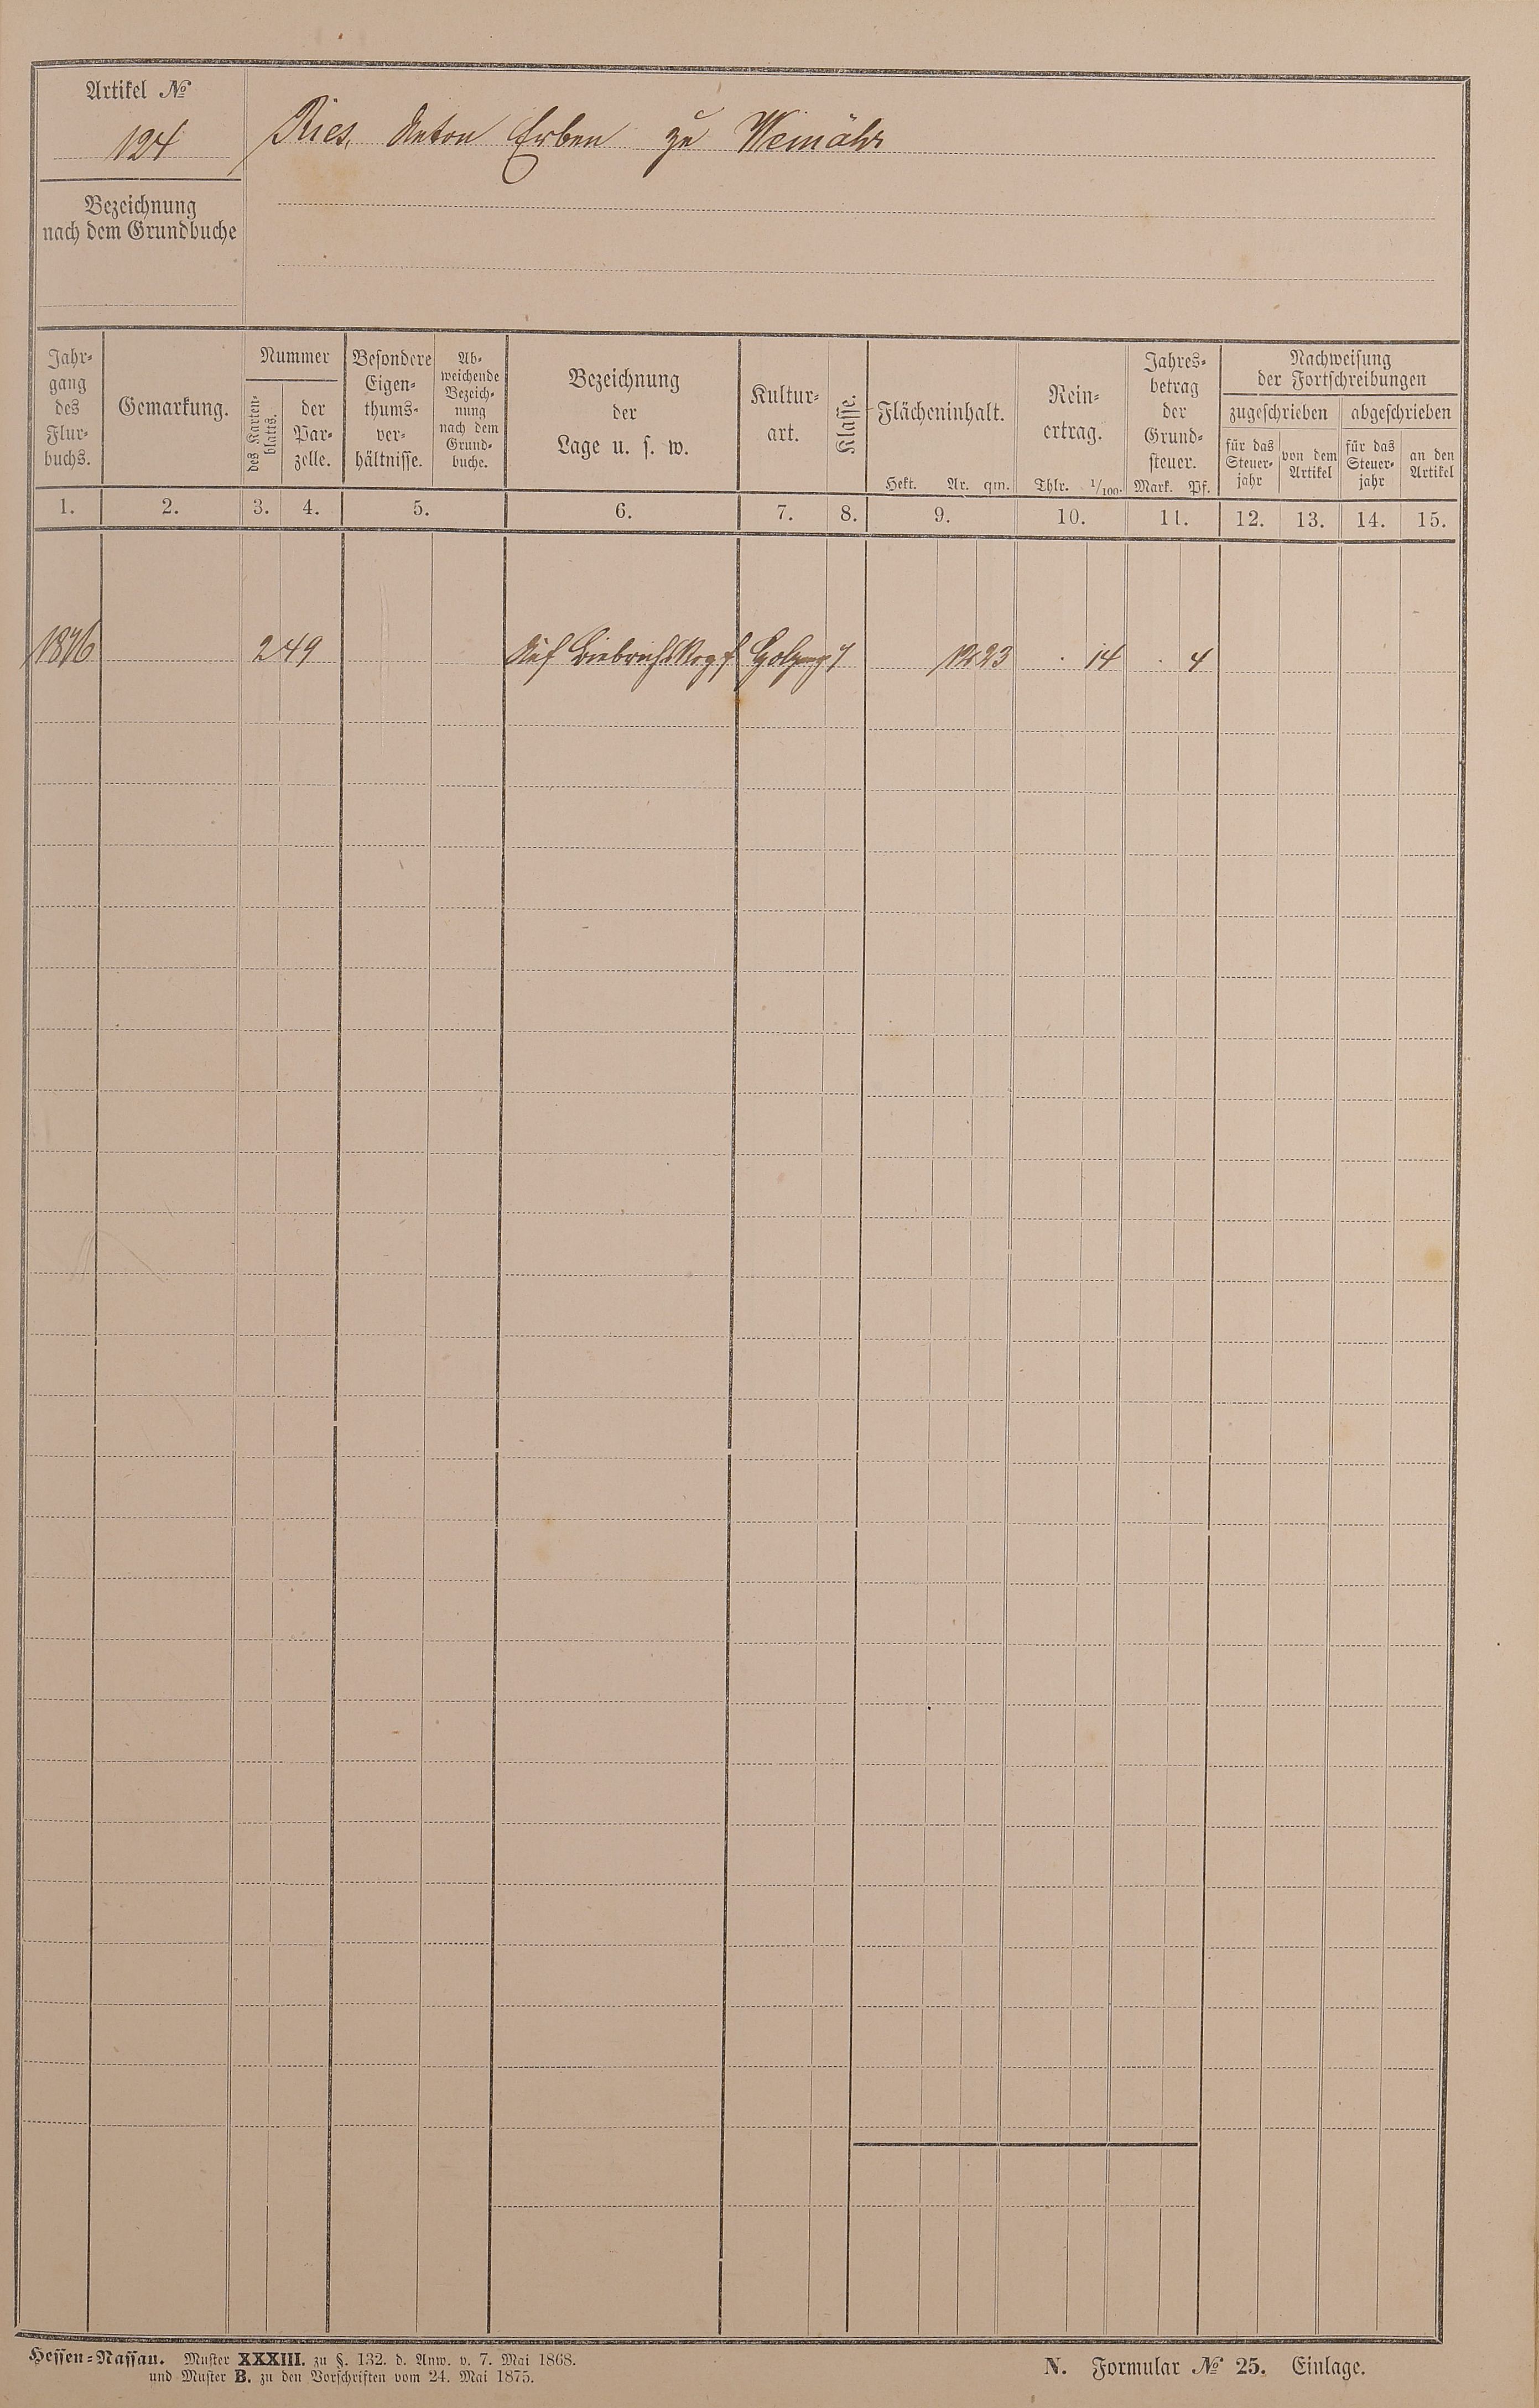 Artikel №
124
Ries, Anton Erben zu Weinähr
Bezeichnung
nach dem Grundbuche
Jahr-
gang
des
Flur-
buchs.
Gemarkung.
Nummer
des Karten-
blatts.
der
Par-
zelle.
Besondere
Eigen-
thums-
ver-
hältnisse.
Ab-
weichende
Bezeich-
nung
nach dem
Grund-
buche.
Bezeichnung
der
Lage u. s. w.
Kultur-
art.
Klasse.
Flächeninhalt.
Hekt. Ar. qm.
Rein-
ertrag.
Thlr. 1/100.
Jahres-
betrag
der
Grund-
steuer.
Mark. Pf.
Nachweisung
der Fortschreibungen
zugeschrieben abgeschrieben
für das
Steuer-
jahr
von dem
Artikel
für das
Steuer-
jahr
an den
Artikel
1. 2. 3. 4. 5. 6. 7. 8. 9. 10. 11. 12. 13. 14. 15.
1876 2 49 Auf Holzung 23 . 14 . 4
Hessen-Nassau. Muster XXXIII. zu §. 132. d. Anw. v. 7. Mai 1868.
und Muster B. zu den Vorschriften vom 24. Mai 1875.
N. Formular № 25. Einlage.